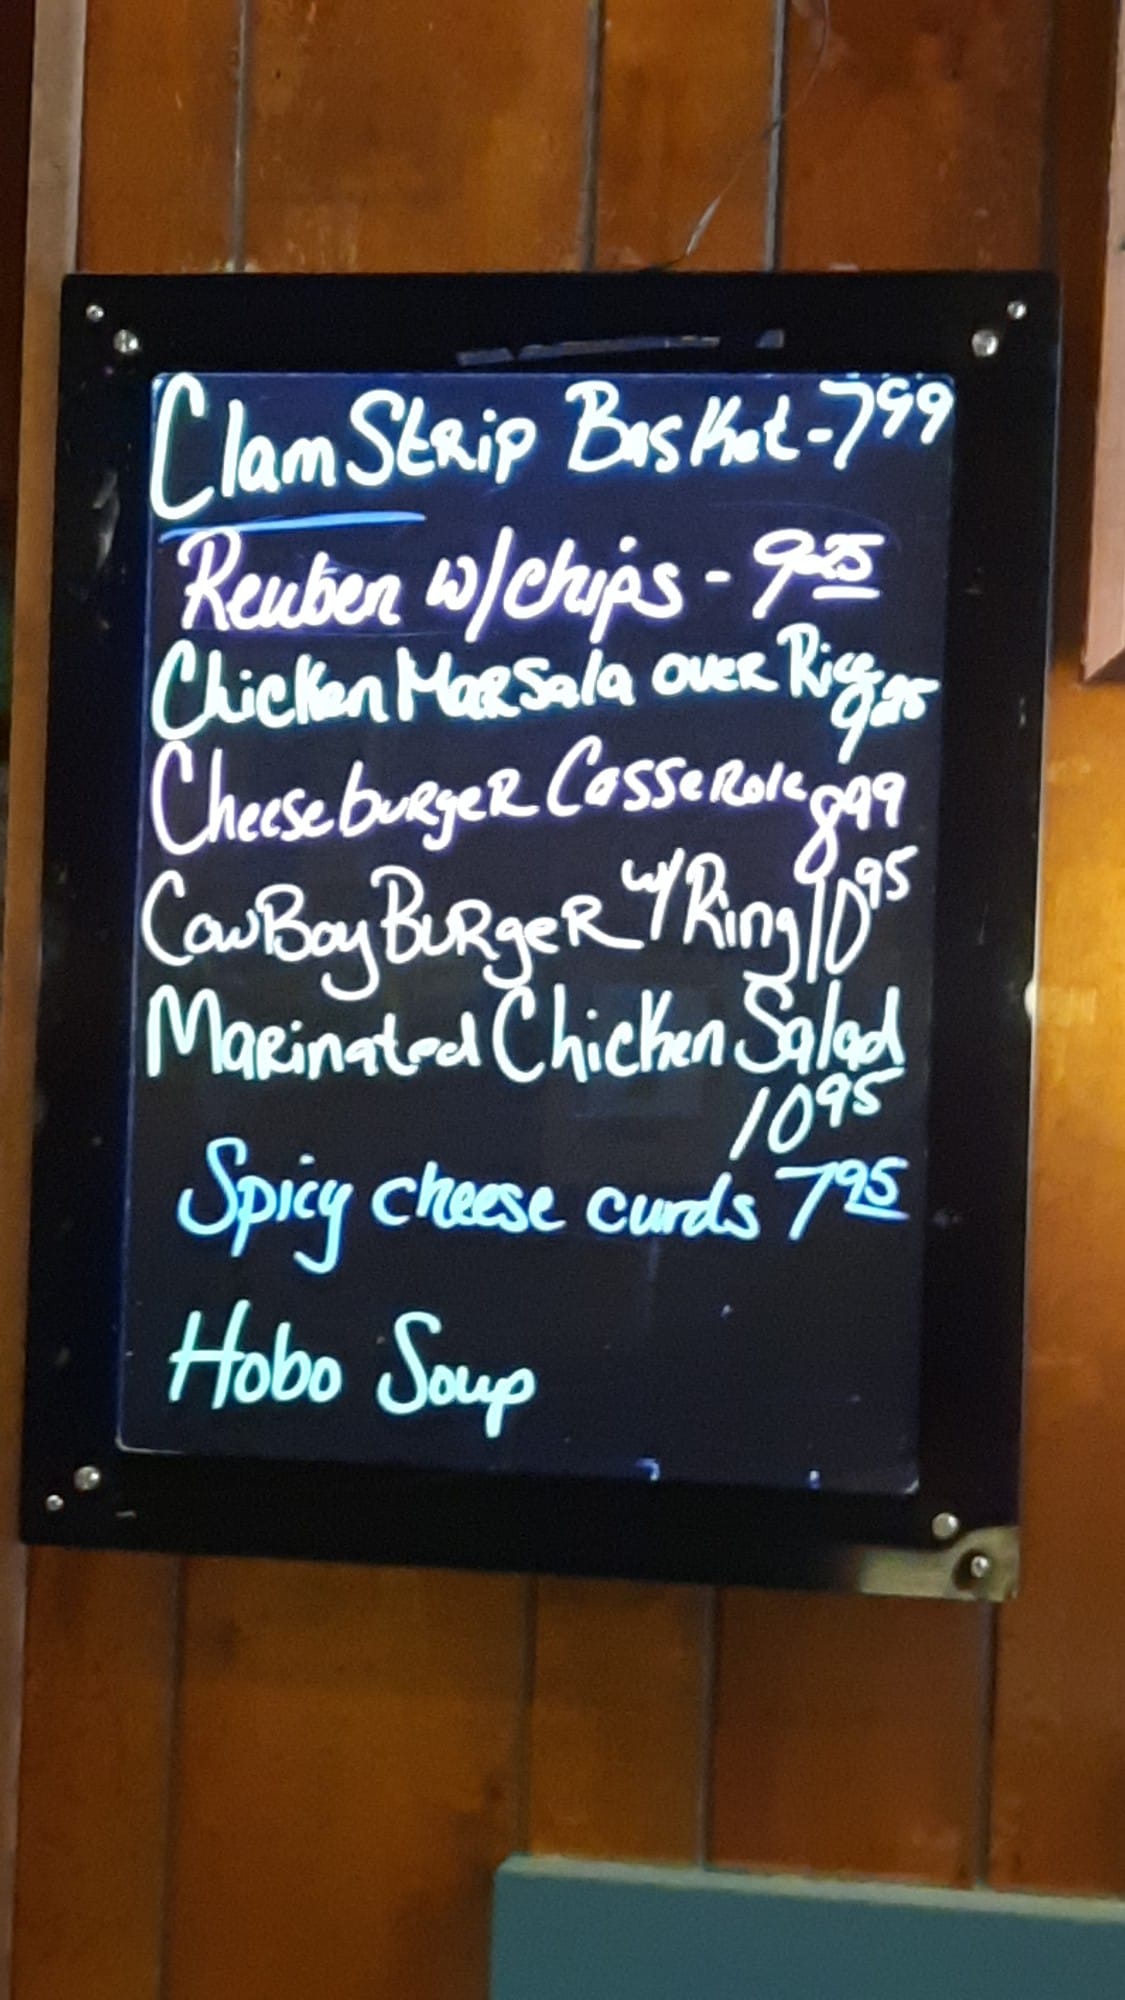 Clam Strip Basket - 7 99
Reuben w/chips - 9 25
Chicken Marsala over Rice
9 25
Cheeseburger Casserole 8 99
CowBoy Burger w/ Ring 10 95
Marinated Chicken Salad
10 95
Spicy cheese curds 7 95
Hobo Soup